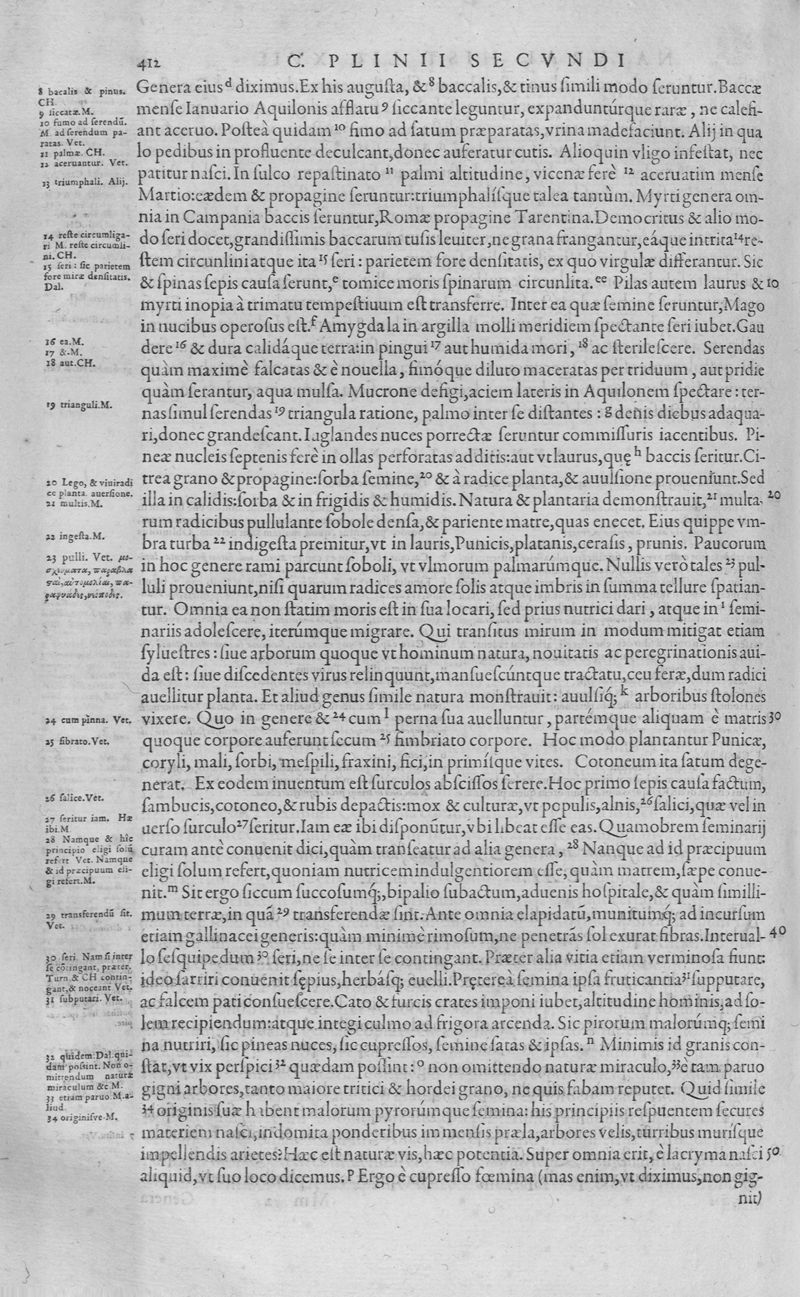 412
C. PLINII SECVNDI
8 bacalis & pinus.
CH
9 siccatæ. M.
10 fumo ad serendū.
M. ad serendum pa-
ratas. Vet.
11 palmæ. CH.
12 aceruantur. Vet.
13 triumphali. Alij.
14 reste circumliga-
ri M. reste circumli-
ni. CH.
15 seri: sic parietem
fore miræ densitatis.
Dal.
16 ea. M.
17 &. M.
18 aut. CH.
19 trianguli. M.
20 Lego, & viuiradi
ce planta. auersione.
21 multis. M.
22 ingesta. M.
23 pulli. Vet.
24 cum pinna. Vet.
25 fibrato. Vet.
26 salice. Vet.
27 seritur iam. Hæ
ibi. M
28 Namque & hic
principio eligi solū
refert Vet. Namque
& id præcipuum eli-
gi refert. M.
29 transferendū sit.
Vet.
30 seri. Nam si inter
se cōtingant, præter.
Turn. & CH contin-
gant, & noceant Vet.
31 subputari. Vet.
32 quidem. Dal. qui-
dam possint. Non o-
mittendum naturæ
miraculum &c M.
33 etiam paruo M. a-
liud.
34 originisve M.
Genera eius ᵈ diximus. Ex his augusta, & ⁸ baccalis, & tinus simili modo seruntur. Baccæ
mense Ianuario Aquilonis afflatu ⁹ siccante leguntur, expandunturque raræ, ne calefi-
ant aceruo. Posteà quidam ¹⁰ fimo ad satum præparatas, vrina madefaciunt. Alij in qua
lo pedibus in profluente deculcant, donec auferatur cutis. Alioquin vligo infestat, nec
patitur nasci. In sulco repastinato ¹¹ palmi altitudine, vicenæ ferè ¹² aceruatim mense
Martio: eædem & propagine seruntur: triumphalisque talea tantùm. Myrti genera om-
nia in Campania baccis seruntur, Romæ propagine Tarentina. Democritus & alio mo-
do seri docet, grandissimis baccarum tusis leuiter, ne grana frangantur, eáque intrita ¹⁴ re-
stem circunlini atque ita ¹⁵ seri: parietem fore densitatis, ex quo virgulæ differantur. Sic
& spinas sepis causa serunt, ᵉ tomice moris spinarum circunlita. ᵉᵉ Pilas autem laurus & 10
myrti inopia à trimatu tempestiuum est transferre. Inter ea quæ semine seruntur, Mago
in nucibus operosus est. ᶠ Amygdala in argilla molli meridiem spectante seri iubet. Gau
dere ¹⁶ & dura calidáque terra: in pingui ¹⁷ aut humida mori, ¹⁸ ac sterilescere. Serendas
quàm maximè falcatas & è nouella, fimóque diluto maceratas per triduum, aut pridie
quàm serantur, aqua mulsa. Mucrone defigi, aciem lateris in Aquilonem spectare: ter-
nas simul serendas ¹⁹ triangula ratione, palmo inter se distantes: ᵍ denis diebus adaqua-
ri, donec grandescant. Iuglandes nuces porrectæ seruntur commissuris iacentibus. Pi-
neæ nucleis septenis ferè in ollas perforatas additis: aut vt laurus, quę ʰ baccis seritur. Ci-
trea grano & propagine: sorba semine, ²⁰ & à radice planta, & auulsione proueniunt. Sed
illa in calidis: sorba & in frigidis & humidis. Natura & plantaria demonstrauit, ²¹ multa- 20
rum radicibus pullulante sobole densa, & pariente matre, quas enecet. Eius quippe vm-
bra turba ²² indigesta premitur, vt in lauris, Punicis, platanis, cerasis, prunis. Paucorum
in hoc genere rami parcunt soboli, vt vlmorum palmarúmque. Nullis verò tales ²³ pul-
luli proueniunt, nisi quarum radices amore solis atque imbris in summa tellure spatian-
tur. Omnia ea non statim moris est in sua locari, sed prius nutrici dari, atque in ⁱ semi-
nariis adolescere, iterúmque migrare. Qui transitus mirum in modum mitigat etiam
syluestres: siue arborum quoque vt hominum natura, nouitatis ac peregrinationis aui-
da est: siue discedentes virus relinquunt, mansuescúntque tractatu, ceu feræ, dum radici
auellitur planta. Et aliud genus simile natura monstrauit: auulsíq; ᵏ arboribus stolones
vixere. Quo in genere & ²⁴ cum ˡ perna sua auelluntur, partémque aliquam è matris 30
quoque corpore auferunt secum ²⁵ fimbriato corpore. Hoc modo plantantur Punicæ,
coryli, mali, sorbi, mespili, fraxini, fici, in primísque vites. Cotoneum ita satum dege-
nerat. Ex eodem inuentum est surculos abscissos serere. Hoc primo sepis causa factum,
sambucis, cotoneo, & rubis depactis: mox & culturæ, vt populis, alnis, ²⁶ salici, quæ vel in
uerso surculo ²⁷ seritur. Iam eæ ibi disponūtur, vbi libeat esse eas. Quamobrem seminarij
curam antè conuenit dici, quàm transeatur ad alia genera, ²⁸ Nanque ad id præcipuum
eligi solum refert, quoniam nutricem indulgentiorem esse, quàm matrem, sæpe conue-
nit. ᵐ Sit ergo siccum succosumq́;, bipalio subactum, aduenis hospitale, & quàm simili-
mum terræ, in quā ²⁹ transferendæ sint. Ante omnia elapidatū, munitumq́; ad incursum
etiam gallinacei generis: quàm minimè rimosum, ne penetrās sol exurat fibras. Interual- 40
lo sesquipedum ³⁰ seri, ne se inter se contingant. Præter alia vitia etiam verminosa fiunt:
ideo sarriri conuenit sępius, herbásq; euelli. Pręterea semina ipsa fruticantia ³¹ supputare,
ac falcem pati consuescere. Cato & furcis crates imponi iubet, altitudine hominis, ad so-
lem recipiendum: atque integi culmo ad frigora arcenda. Sic pirorum malorúmq; semi
na nutriri, sic pineas nuces, sic cupressos, semine satas & ipsas. ⁿ Minimis id granis con-
stat, vt vix perspici ³² quædam possint: ᵒ non omittendo naturæ miraculo, ³³ è tam paruo
gigni arbores, tanto maiore tritici & hordei grano, ne quis fabam reputet. Quid simile
³⁴ originis suæ habent malorum pyrorúmque semina: his principiis respuentem secures
materiem nasci, indomita ponderibus immensis præla, arbores velis, turribus murisque
impellendis arietes? Hæc est naturæ vis, hæc potentia. Super omnia erit, è lacryma nasci 50
aliquid, vt suo loco dicemus. ᵖ Ergo è cupresso fœmina (mas enim, vt diximus, non gig-
nit)